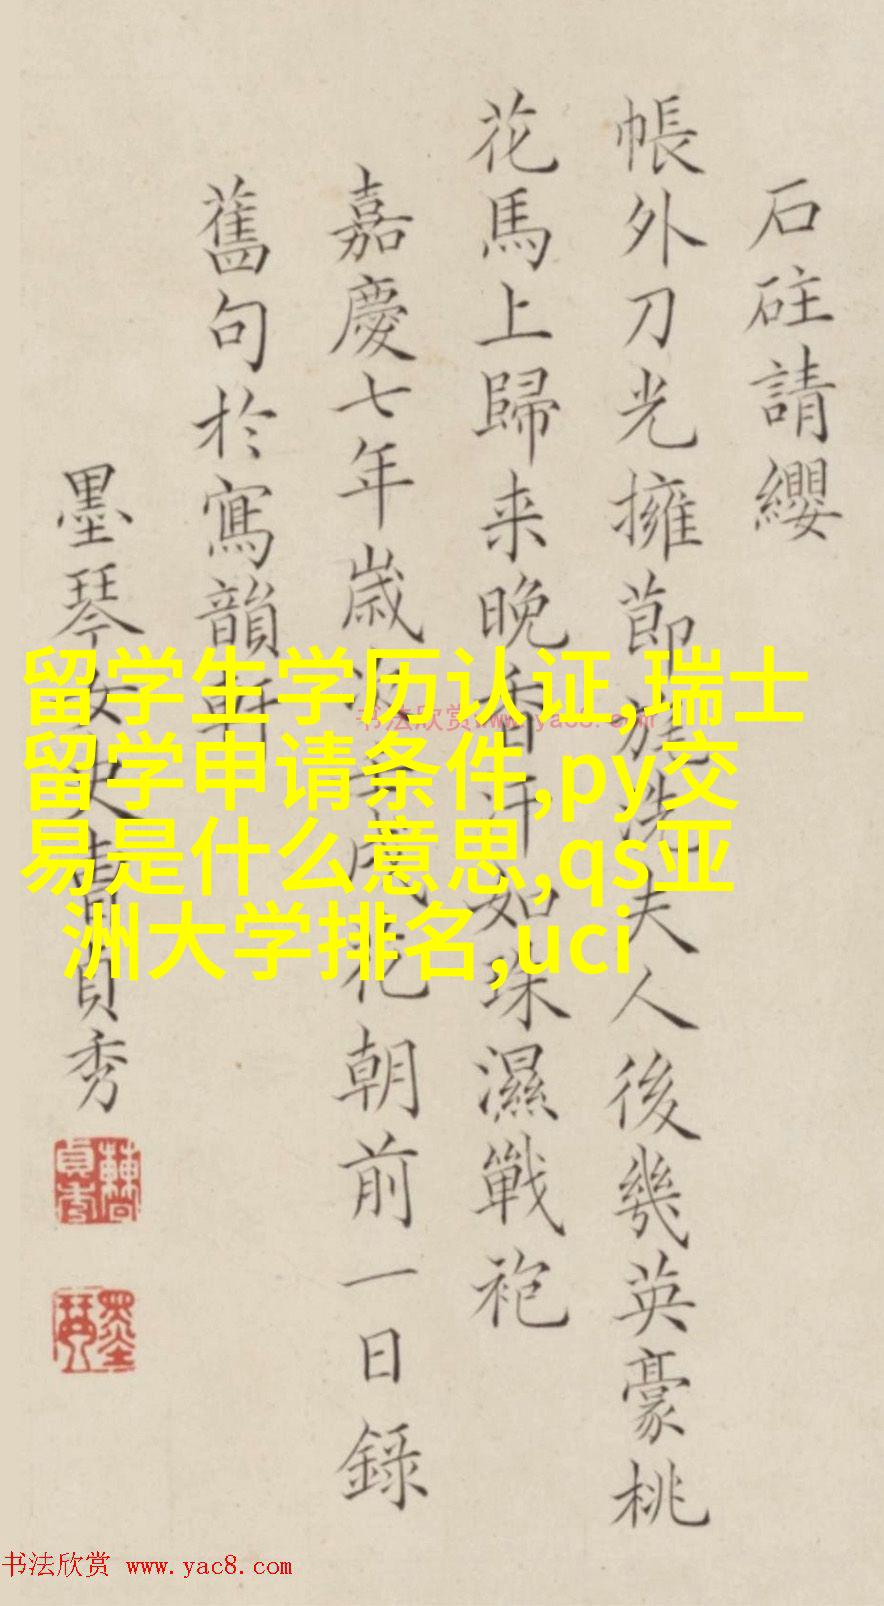 石砫請纓
帳外刀光擁節旄洗夫人後幾英豪桃
花馬上歸来晚香汗如珠濕戰袍
嘉慶七年歲次壬戌花朝前一日錄
舊句於寫韻軒
墨琴女史曹貞秀
墨琴
留学生学历认证,瑞士
留学申请条件,py交
易是什么意思,qs亚
洲大学排名,uci
书法欣赏 www.yac8.com
书法欣赏 www.yac8.com